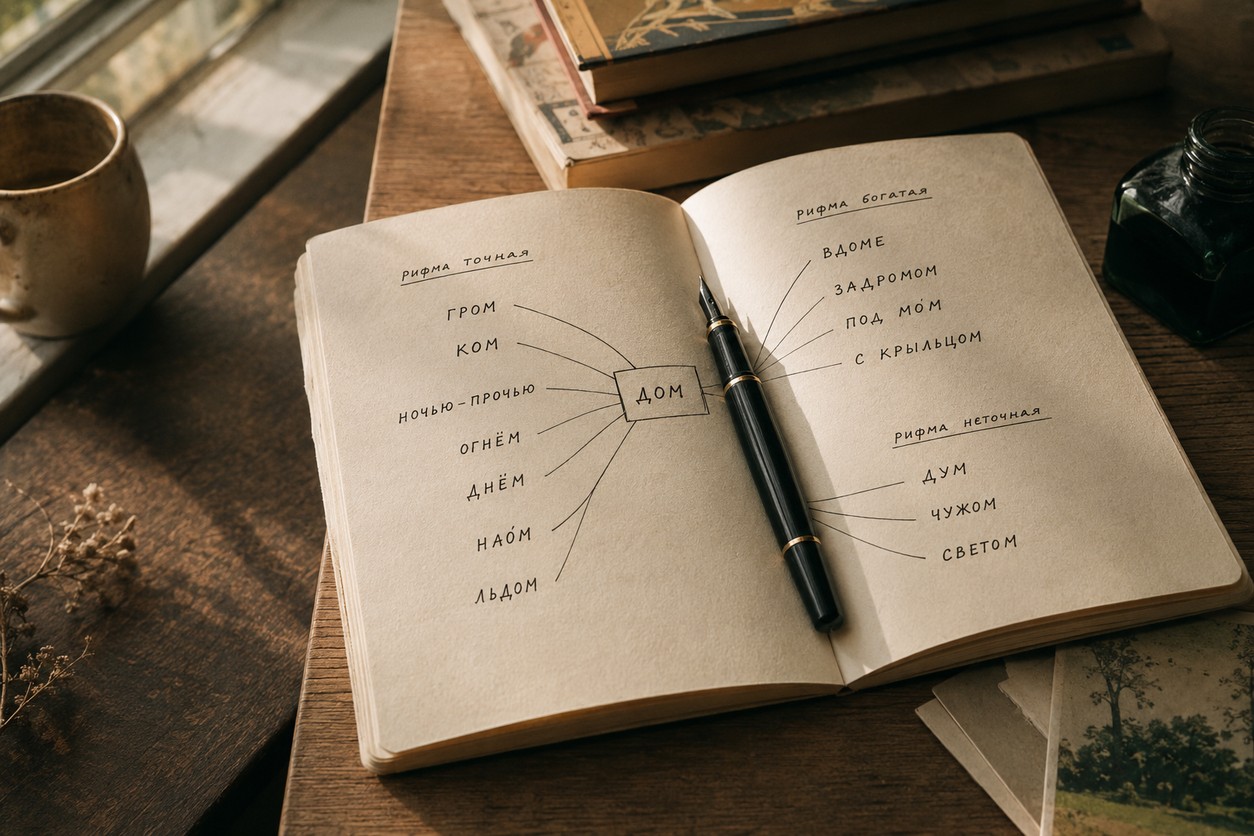 РИФМА ТОЧНАЯ
ГРОМ
КОМ
НОЧЬЮ-ПРОЧЬЮ
ОГНЁМ
ДНЁМ
НАО́М
ЛЬДОМ
ДОМ
РИФМА БОГАТАЯ
ВДОМЕ
ЗАДРОМОМ
ПОД МО́М
С КРЫЛЬЦОМ
РИФМА НЕТОЧНАЯ
ДУМ
ЧУЖОМ
СВЕТОМ